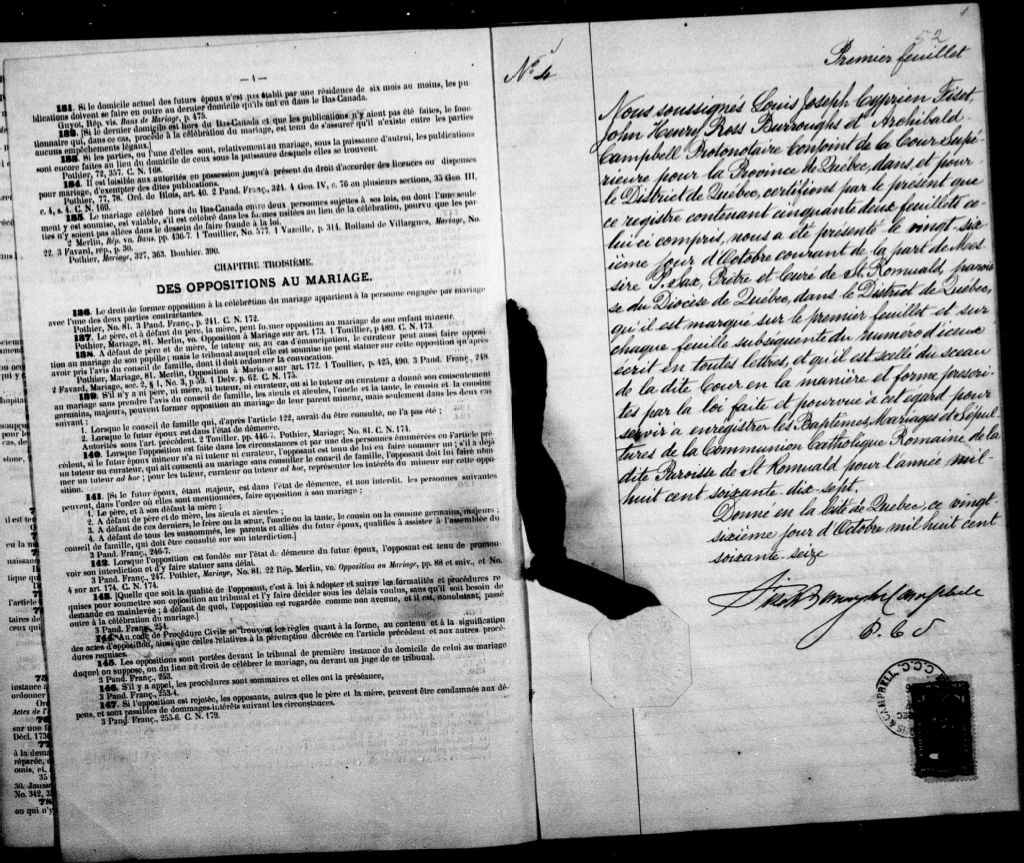 — 4 —
131. Si le domicile actuel des futurs époux n'est pas établi par une résidence de six mois au moins, les pu-
blications doivent se faire en outre au dernier domicile qu'ils ont eu dans le Bas-Canada.
Guyot, Rép. vis. Bans de Mariage, p. 475.
132. [Si le dernier domicile est hors du Bas-Canada et que les publications n'y aient pas été faites, le fonc-
tionnaire qui, dans ce cas, procède à la célébration du mariage, est tenu de s'assurer qu'il n'existe entre les parties
aucuns empêchements légaux.]
133. Si les parties, ou l'une d'elles sont, relativement au mariage, sous la puissance d'autrui, les publications
sont encore faites au lieu du domicile de ceux sous la puissance desquels elles se trouvent.
Pothier, 72, 357. C. N. 168.
134. Il est loisible aux autorités en possession jusqu'à présent du droit d'accorder des licences ou dispenses
pour mariage, d'exempter des dites publications.
Pothier, 77, 78. Ord. de Blois, art. 40. 2 Pand. Franç., 324. 4 Geo. IV, c. 76 en plusieurs sections, 35 Geo. III,
c. 4, s. 4. C. N. 169.
135. Le mariage célébré hors du Bas-Canada entre deux personnes sujettes à ses lois, ou dont l'une seule-
ment y est soumise, est valable, s'il est célébré dans les formes usitées au lieu de la célébration, pourvu que les par-
ties n'y soient pas allées dans le dessein de faire fraude à la loi.
2 Merlin, Rép. vo. Bans. pp. 436-7. 1 Toullier, No. 577. 1 Vazeille, p. 314. Rolland de Villargues, Mariage, No.
22. 3 Favard, rép., p. 30.
Pothier, Mariage, 327, 363. Bouhier. 390.
CHAPITRE TROISIÈME.
DES OPPOSITIONS AU MARIAGE.
136. Le droit de former opposition à la célébration du mariage appartient à la personne engagée par mariage
avec l'une des deux parties contractantes.
Pothier, No. 81. 3 Pand. Franç., p. 241. C. N. 172.
137. Le père, et à défaut du père, la mère, peut former opposition au mariage de son enfant mineur.
Pothier, Mariage, 81. Merlin, vo. Opposition à Mariage sur art. 173. 1 Toullier, p 489. C. N. 173.
138. A défaut de père et de mère, le tuteur ou, au cas d'émancipation, le curateur peut aussi faire opposi-
tion au mariage de son pupille; mais le tribunal auquel elle est soumise ne peut statuer sur cette opposition qu'après
avoir pris l'avis du conseil de famille, dont il doit ordonner la convocation.
Pothier, Mariage, 81. Merlin, Opposition à Maria sur art. 172. 1 Toullier, p 425, 490. 3 Pand. Franç., 248.
2 Favard, Mariage, sec. 2, § 1, No. 3, p 59. 1 Delv. p. 62. C. N. 175.
139. S'il n'y a ni père, ni mère, ni tuteur, ni curateur, ou si le tuteur ou curateur a donné son consentement
au mariage sans prendre l'avis du conseil de famille, les aïeuls et aïeules, l'oncle et la tante, le cousin et la cousine
germains, majeurs, peuvent former opposition au mariage de leur parent mineur, mais seulement dans les deux cas
suivant :
1. Lorsque le conseil de famille qui, d'après l'article 122, aurait du être consulté, ne l'a pas été ;
2. Lorsque le futur époux est dans l'état de démence.
Autorités sous l'art. précédent. 2 Toullier, pp. 446-7. Pothier, Mariage; No. 81. C. N. 174.
140. Lorsque l'opposition est faite dans les circonstances et par une des personnes énumérées en l'article pré-
cédent, si le futur époux mineur n'a ni tuteur ni curateur, l'opposant est tenu de lui en faire nommer un ; s'il a déjà
un tuteur ou curateur, qui ait consenti au mariage sans consulter le conseil de famille, l'opposant doit lui faire nom-
mer un tuteur ad hoc ; pour les tuteur, curateur ou tuteur ad hoc, représenter les intérêts du mineur sur cette oppo-
sition.
141. [Si le futur époux, étant majeur, est dans l'état de démence, et non interdit, les personnes suivantes
peuvent, dans l'ordre où elles sont mentionnées, faire opposition à son mariage ;
1. Le père, et à son défaut la mère ;
2. A défaut de père et de mère, les aïeuls et aïeules ;
3. A défaut de ces derniers, le frère ou la sœur, l'oncle ou la tante, le cousin ou la cousine germains, majeurs ;
4. A défaut de tous les susnommés, les parents et alliés du futur époux, qualifiés à assister à l'assemblée du
conseil de famille, qui doit être consulté sur son interdiction.]
3 Pand. Franç., 246-7.
142. Lorsque l'opposition est fondée sur l'état de démence du futur époux, l'opposant est tenu de promou-
voir son interdiction et d'y faire statuer sans délai.
3 Pand. Franç., 247. Pothier, Mariage, No. 81. 22 Rép. Merlin, vo. Opposition au Mariage, pp. 88 et suiv., et No.
4 sur art. 174. C. N. 174.
143. [Quelle que soit la qualité de l'opposant, c'est à lui à adopter et suivre les formalités et procédures re-
quises pour soumettre son opposition au tribunal et l'y faire décider sous les délais voulus, sans qu'il soit besoin de
demande en mainlevée ; à défaut de quoi, l'opposition est regardée comme non avenue, et il est, nonobstant, passé
outre à la célébration du mariage.]
3 Pand. Franç., 254.
144. Au code de Procédure Civile se trouvent les règles quant à la forme, au contenu et à la signification
des actes d'opposition, ainsi que celles relatives à la péremption décrétée en l'article précédent et aux autres procé-
dures requises.
145. Les oppositions sont portées devant le tribunal de première instance du domicile de celui au mariage
duquel on s'oppose, ou du lieu où doit se célébrer le mariage, ou devant un juge de ce tribunal.
3 Pand. Franç., 253.
146. S'il y a appel, les procédures sont sommaires et elles ont la préséance,
3 Pand. Franç., 253-4.
147. Si l'opposition est rejetée, les opposants, autres que le père et la mère, peuvent être condamnés aux dé-
pens, et sont passibles de dommages-intérêts suivant les circonstances.
3 Pand. Franç., 255-6. C. N. 179.
No. 4
1
52
Premier feuillet
Nous soussignés Louis Joseph Cyprien Fiset,
John Henry Ross Burroughs et Archibald
Campbell Protonotaire Conjoint de la Cour Supé-
rieure pour la Province de Québec, dans et pour
le District de Québec, certifions par le present que
ce registre contenant cinquante deux feuillets ce-
lui ci compris, nous a été présenté le vingt-six-
ième jour d'Octobre courant de la part de Mes-
sire P. Sax, Prêtre et Curé de St. Romuald, parois-
se du Diocèse de Québec, dans le District de Québec,
qu'il est marqué sur le premier feuillet et sur
chaque feuille subsequente du numero d'iceux
écrit en toutes lettres, et qu'il est scellé du sceau
de la dite Cour en la manière et forme prescri-
tes par la loi faite et pourvue à cet egard pour
servir a enregistrer les Baptêmes, Mariages et Sépul-
tures de la Communion Catholique Romaine de la
dite Paroisse de St Romuald pour l'année mil-
huit cent soixante dix-sept.
Donné en la Cité de Quebec, ce vingt-
sixième jour d'Octobre mil huit cent
soixante-seize
Fiset Burroughs Campbell
P. C. S
& CAMPBELL C.C.C.